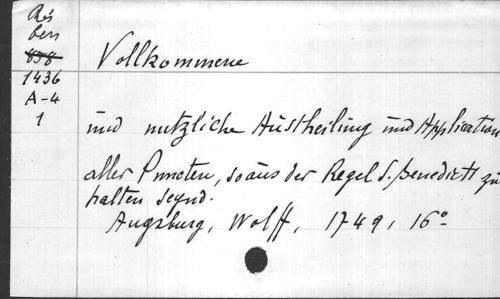 Rés
Ben
858
1436
A-4
1
Vollkommene
und nutzliche Austheilung und Application
aller Puncten, so aus der Regel S. Benedicti zu
halten seynd.
Augsburg, Wolff, 1749, 16°